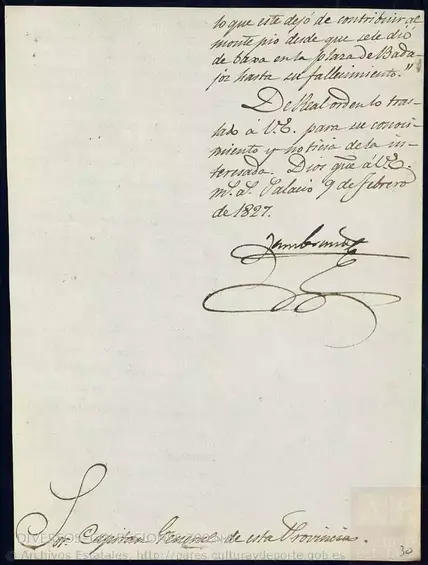 lo que este dejó de contribuir al
monte pio desde que se le dió
de baxa en la plaza de Bada-
joz hasta su fallecimiento."
De Real orden lo tras-
lado á V.E. para su conoci-
miento y noticia de la in-
teresada. Dios gue á V.E.
m.s a.s Palacio 9 de febrero
de 1827.
Zambrano
Sor. Capitan General de esta Provincia.
© Archivos Estatales, http://pares.culturaydeporte.gob.es
30